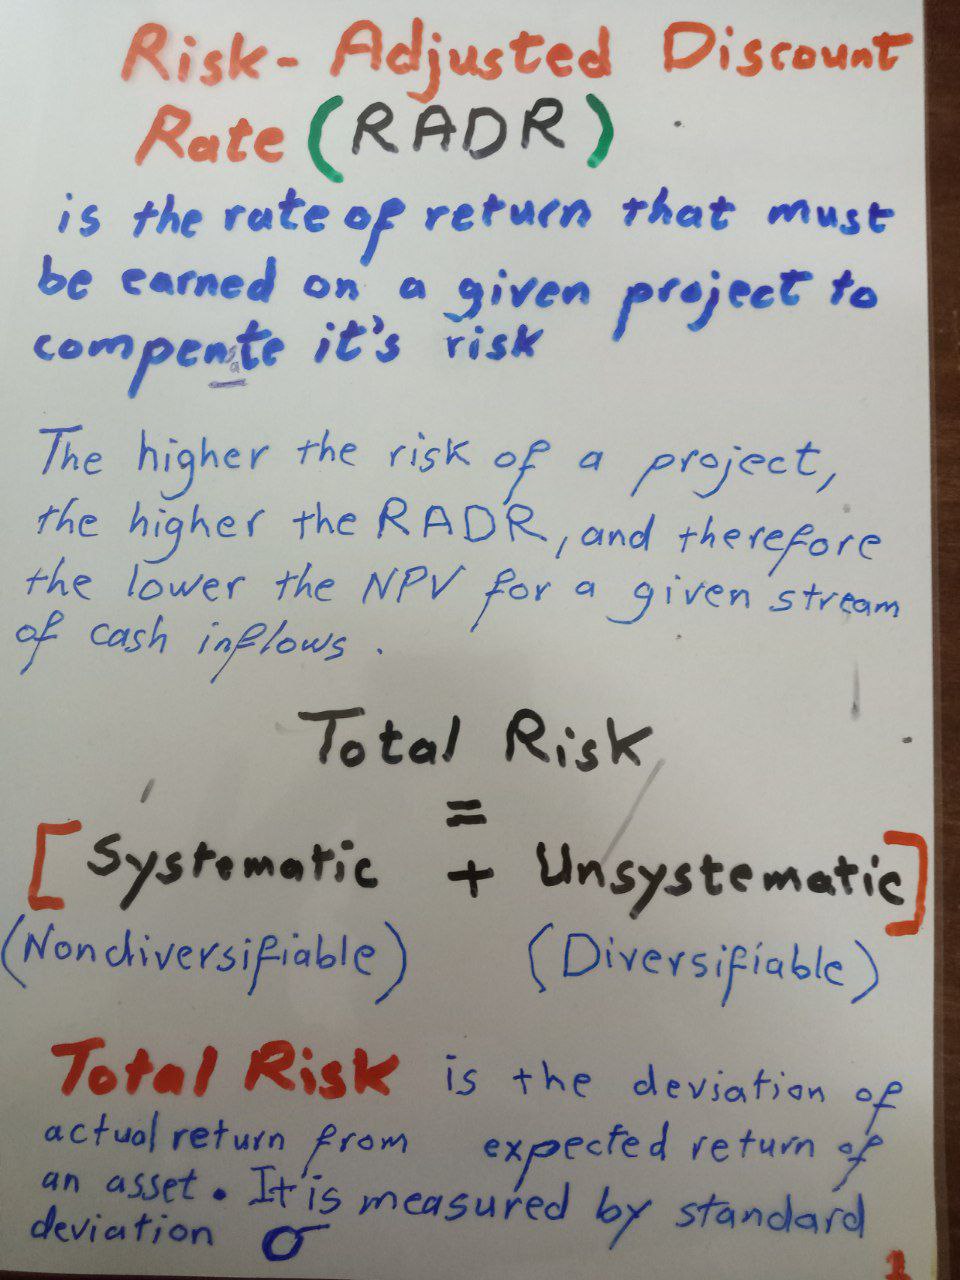 Risk- Adjusted Discount
Rate (RADR)
is the rate of return that must
be earned on a given project to
compensate it's risk
The higher the risk of a project,
the higher the RADR, and therefore
the lower the NPV for a given stream
of cash inflows.
Total Risk
=
[Systematic + Unsystematic]
(Nondiversifiable) (Diversifiable)
Total Risk is the deviation of
actual return from expected return of
an asset. It is measured by standard
deviation σ
1